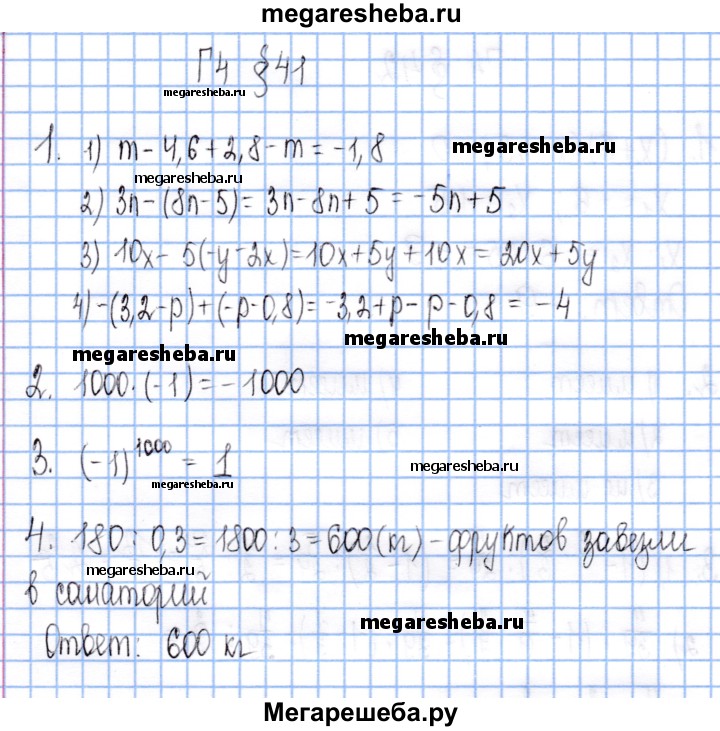 megaresheba.ru
Г4 §41
megaresheba.ru
1. 1) m - 4,6 + 2,8 - m = -1,8 megaresheba.ru
megaresheba.ru
2) 3n - (8n - 5) = 3n - 8n + 5 = -5n + 5
3) 10x - 5(-y - 2x) = 10x + 5y + 10x = 20x + 5y
4) -(3,2 - p) + (-p - 0,8) = -3,2 + p - p - 0,8 = -4
megaresheba.ru megaresheba.ru
2. 1000·(-1) = -1000
3. (-1)^1000 = 1 megaresheba.ru
megaresheba.ru
4. 180 : 0,3 = 1800 : 3 = 600 (кг) - фруктов завезли
megaresheba.ru
в санаторий
megaresheba.ru
Ответ: 600 кг
Мегарешеба.ру